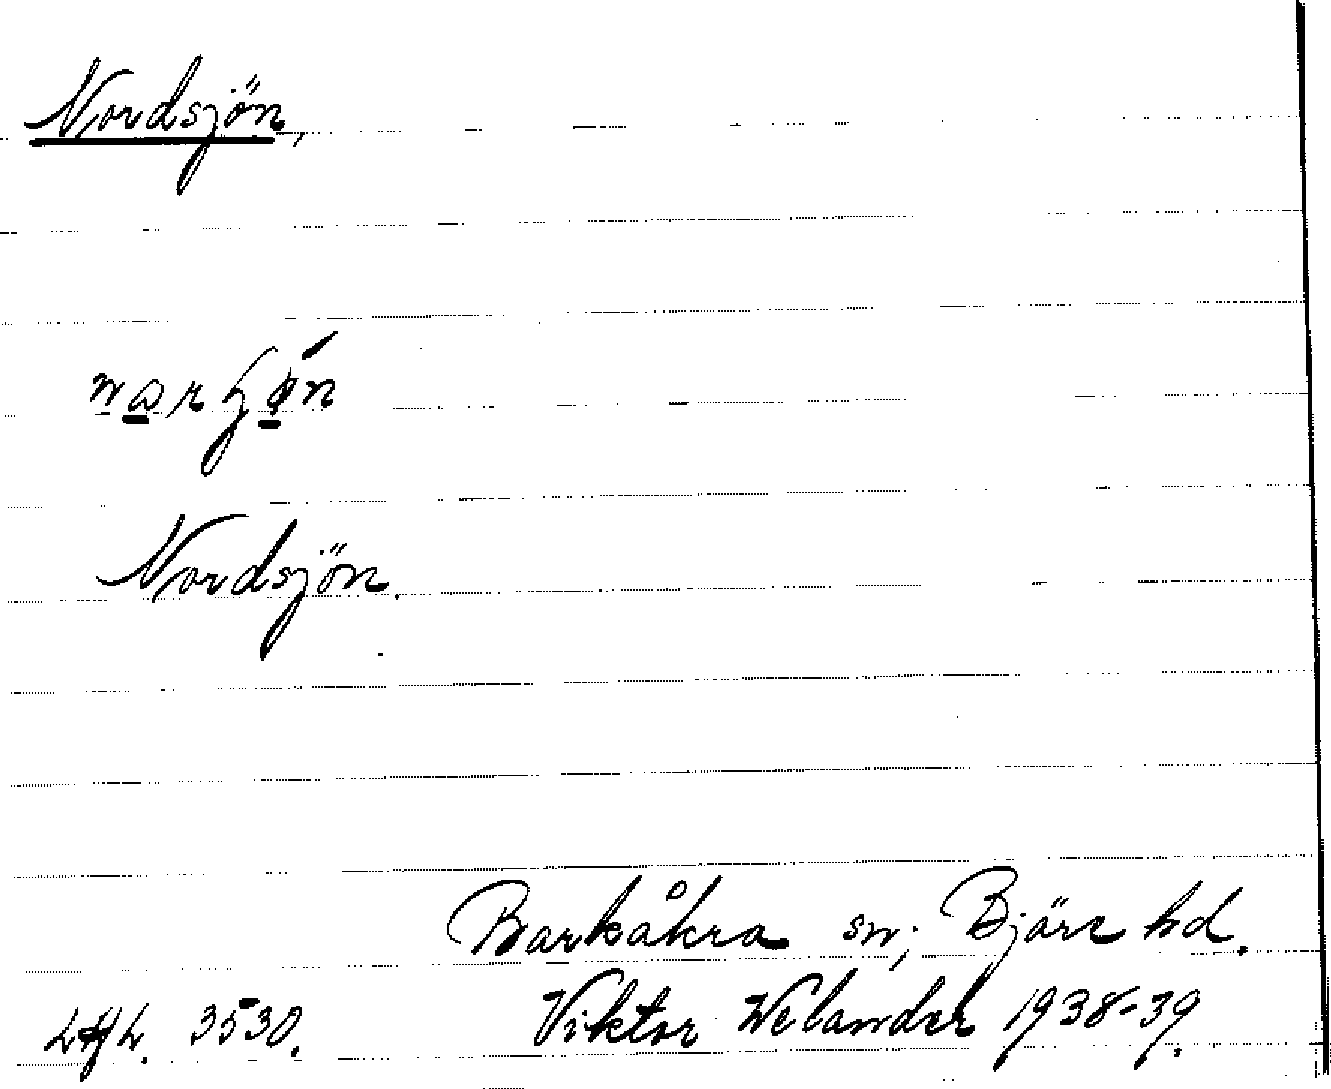 Nordsjön,
Nordsjön.
Barkåkra sn; Bjäre hd.
Viktor Welander 1938-39.
3530.